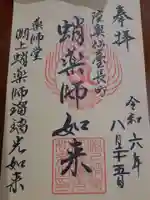 奉拝
陸奥仙臺長町
令和六年
八月十五日
蛸薬師如来
薬師堂
渕上蛸薬師瑠璃光如来